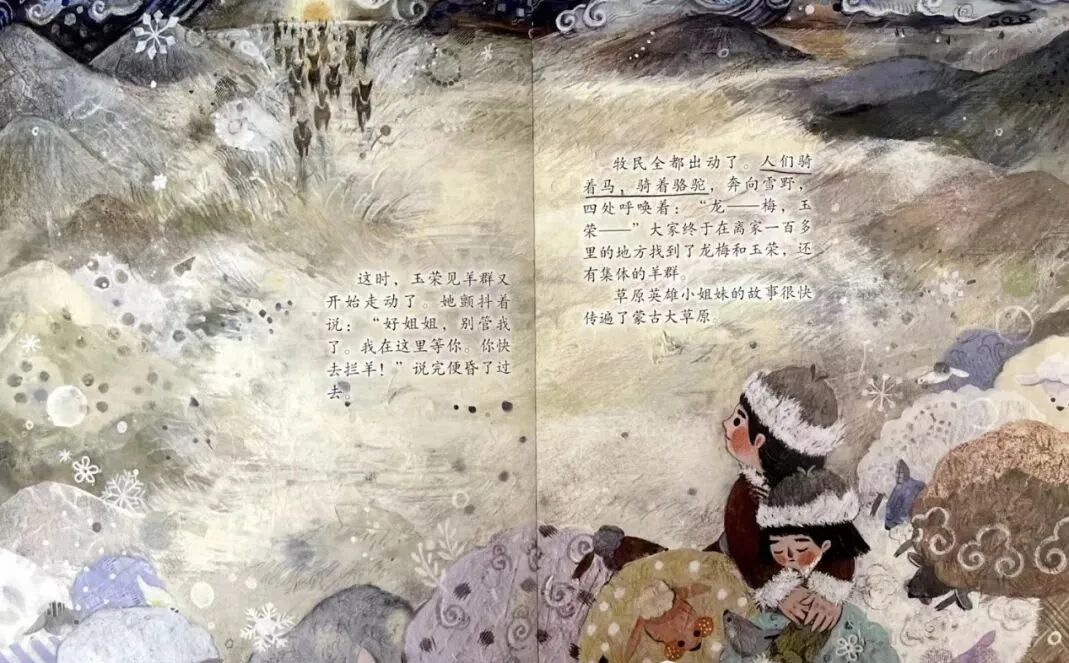 这时，玉荣见羊群又
开始走动了。她颤抖着
说：“好姐姐，别管我
了。我在这里等你。你快
去拦羊！”说完便昏了过
去。
牧民全都出动了。人们骑
着马，骑着骆驼，奔向雪野，
四处呼唤着：“龙——梅，玉
荣——”大家终于在离家一百多
里的地方找到了龙梅和玉荣，还
有集体的羊群。
草原英雄小姐妹的故事很快
传遍了蒙古大草原。